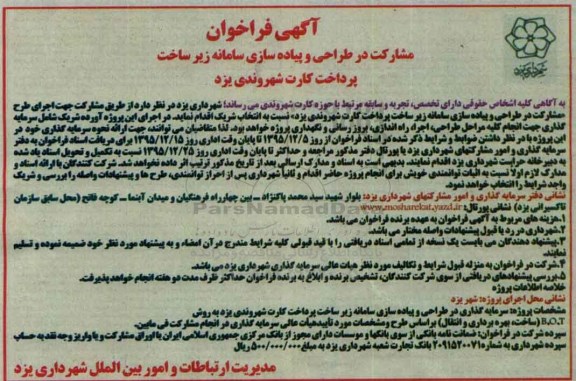 آگهی فراخوان
مشارکت در طراحی و پیاده سازی سامانه زیر ساخت
پرداخت کارت شهروندی یزد
به آگاهی کلیه اشخاص حقوقی دارای تخصص، تجربه و سابقه مرتبط با حوزه کارت شهروندی می رساند؛ شهرداری یزد در نظر دارد از طریق مشارکت جهت اجرای طرح
«مشارکت در طراحی و پیاده سازی سامانه زیر ساخت پرداخت کارت شهروندی یزد» نسبت به انتخاب شریک اقدام نماید. در اجرای این پروژه آورده شریک شامل سرمایه
گذاری جهت انجام کلیه مراحل طراحی، اجرا، راه اندازی، بروز رسانی و نگهداری پروژه خواهد بود. لذا متقاضیان می توانند، جهت ارائه نحوه سرمایه گذاری خود در
این پروژه با در نظر داشتن ضوابط و شرایط ذکر شده در اسناد فراخوان از روز ۱۳۹۵/۱۲/۵ تا پایان وقت اداری روز ۱۳۹۵/۱۲/۱۵ برای دریافت اسناد فراخوان به دفتر
سرمایه گذاری و امور مشارکتهای شهرداری یزد یا پورتال دفتر مذکور مراجعه و حداکثر تا پایان وقت اداری روز ۱۳۹۵/۱۲/۲۵ نسبت به تکمیل و تحویل اسناد یاد شده
به دبیر خانه حراست شهرداری یزد اقدام نمایند. بدیهی است به اسناد و مدارک ارسالی بعد از تاریخ مذکور ترتیب اثر داده نخواهد شد. شرکت کنندگان با ارائه اسناد و
مدارک لازم اولاً نسبت به اثبات توانمندی خویش برای انجام پروژه حاضر اقدام و ثانیاً شهرداری یزد پس از احراز توانمندی، طرح ها و پیشنهادات واصله را بررسی و شریک
واجد شرایط را انتخاب خواهد نمود.
نشانی دفتر سرمایه گذاری و امور مشارکتهای شهرداری یزد: بلوار شهید سید محمد پاکنژاد – بین چهارراه فرهنگیان و میدان آبنما – کوچه فاتح (محل سابق سازمان
تاکسیرانی یزد) نشانی پورتال: www.mosharekat.yazd.ir
۱.هزینه های مربوط به آگهی فراخوان به عهده برنده فراخوان می باشد.
۲.شهرداری در رد یا قبول پیشنهادات واصله مختار می باشد.
۳.پیشنهاد دهندگان می بایست یک نسخه از تمامی اسناد دریافتی را با قید قبولی کلیه شرایط مندرج در آن امضاء و به پیشنهاد مورد نظر خود ضمیمه نموده و تسلیم
نمایند.
۴.شرکت در فراخوان به منزله قبول شرایط و تکالیف مورد نظر هیات عالی سرمایه گذاری شهرداری یزد می باشد.
۵.بررسی پیشنهادهای دریافتی از سوی شرکت کنندگان، تشخیص برنده و ابلاغ به برنده فراخوان حداکثر ظرف مدت دو هفته انجام خواهد پذیرفت.
خلاصه اطلاعات پروژه
نشانی محل اجرای پروژه: شهر یزد
مشخصات پروژه: سرمایه گذاری در طراحی و پیاده سازی سامانه زیر ساخت پرداخت کارت شهروندی یزد به روش
B.O.T (ساخت بهره برداری و انتقال) براساس طرح و مشخصات مورد تأیید هیأت عالی سرمایه گذاری در انجام مشارکت می باشد.
سپرده شرکت در فراخوان: ضمانت نامه بانکی از سوی بانکها و موسسات دارای مجوز از بانک مرکزی جمهوری اسلامی ایران یا اوراق مشارکت و یا واریز وجه نقد به حساب
سپرده شهرداری به شماره ۲۰۹۱۵۲۰۰۷۱ بانک تجارت شعبه شهرداری یزد به مبلغ ۵۰۰/۰۰۰/۰۰۰ ریال
مدیریت ارتباطات و امور بین الملل شهرداری یزد